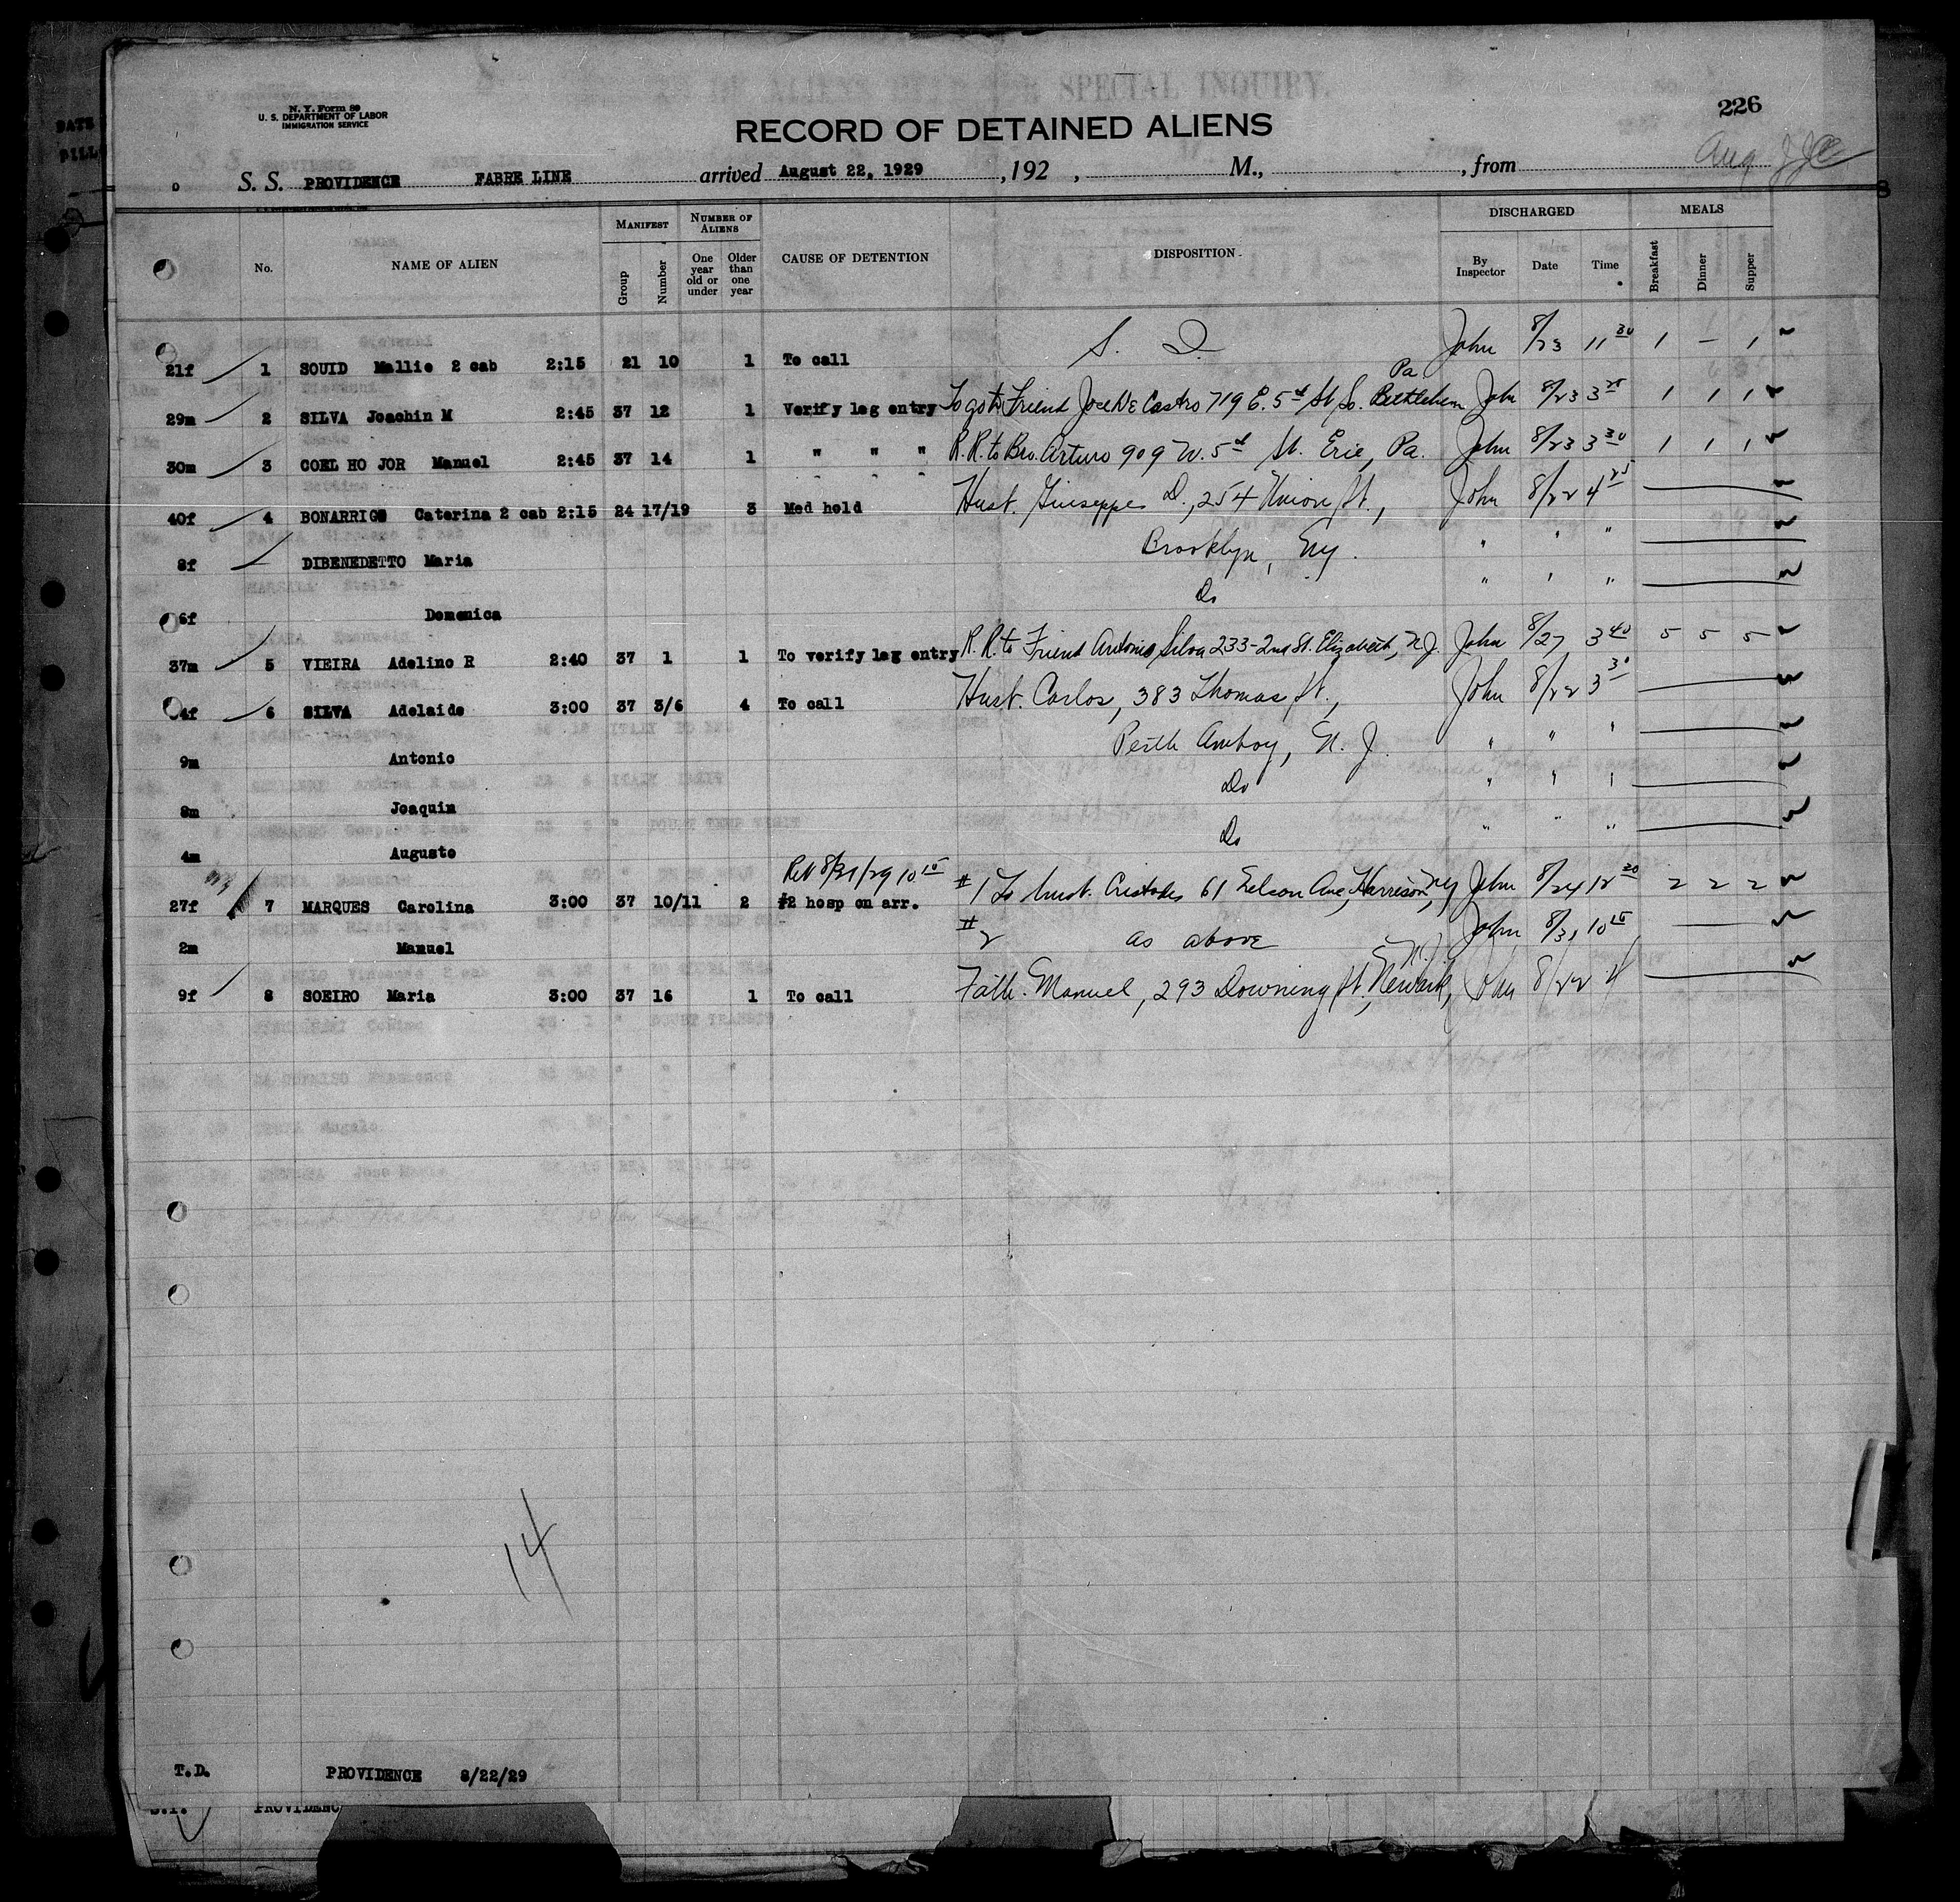 N. Y. Form 89
U. S. DEPARTMENT OF LABOR
IMMIGRATION SERVICE
226
RECORD OF DETAINED ALIENS
S. S. PROVIDENCE FABRE LINE arrived August 22, 1929 , 192 , M., , from
No. NAME OF ALIEN MANIFEST Group Number NUMBER OF ALIENS One year old or under Older than one year CAUSE OF DETENTION DISPOSITION DISCHARGED By Inspector Date Time MEALS Breakfast Dinner Supper
21f 1 SOUID Mallie 2 cab 2:15 21 10 1 To call S. I. John 8/23 11 30 1 — 1
29m 2 SILVA Joachin M 2:45 37 12 1 Verify leg entry To go to Friend Jose De Castro 719 E. 5th St So. Bethlehem Pa. John 8/23 3 25 1 1 1
30m 3 COEL HO JOR Manuel 2:45 37 14 1 " " " R.R. to Bro. Arturo 909 W. 5th St. Erie, Pa. John 8/23 3 30 1 1 1
40f 4 BONARRIGO Caterina 2 cab 2:15 24 17/19 3 Med held Husb. Giuseppe D., 254 Union St., John 8/22 4 25
8f DIBENEDETTO Maria Brooklyn, Ny. " " "
6f Domenica Do " " "
37m 5 VIEIRA Adelino R 2:40 37 1 1 To verify leg entry R.R. to Friend Antonio Silva 233-2nd St. Elizabeth, N.J. John 8/27 3 40 5 5 5
4f 6 SILVA Adelaide 3:00 37 3/6 4 To call Husb. Carlos, 383 Thomas St., John 8/22 3 30
9m Antonio Perth Amboy, N. J. " " "
8m Joaquin Do " " "
4m Auguste Do " " "
Rel 8/31/29 10 15
27f 7 MARQUES Carolina 3:00 37 10/11 2 #2 hosp on arr. #1 To husb. Cristodes 61 Nelson Ave, Harrison, Ny John 8/24 12 30 2 2 2
2m Manuel #2 as above John 8/31 10 15
9f 8 SOEIRO Maria 3:00 37 16 1 To call Fath. Manuel, 293 Downing St., Newark, N.J. John 8/22 4
14
T.D. PROVIDENCE 8/22/29
S.I. PROVIDENC